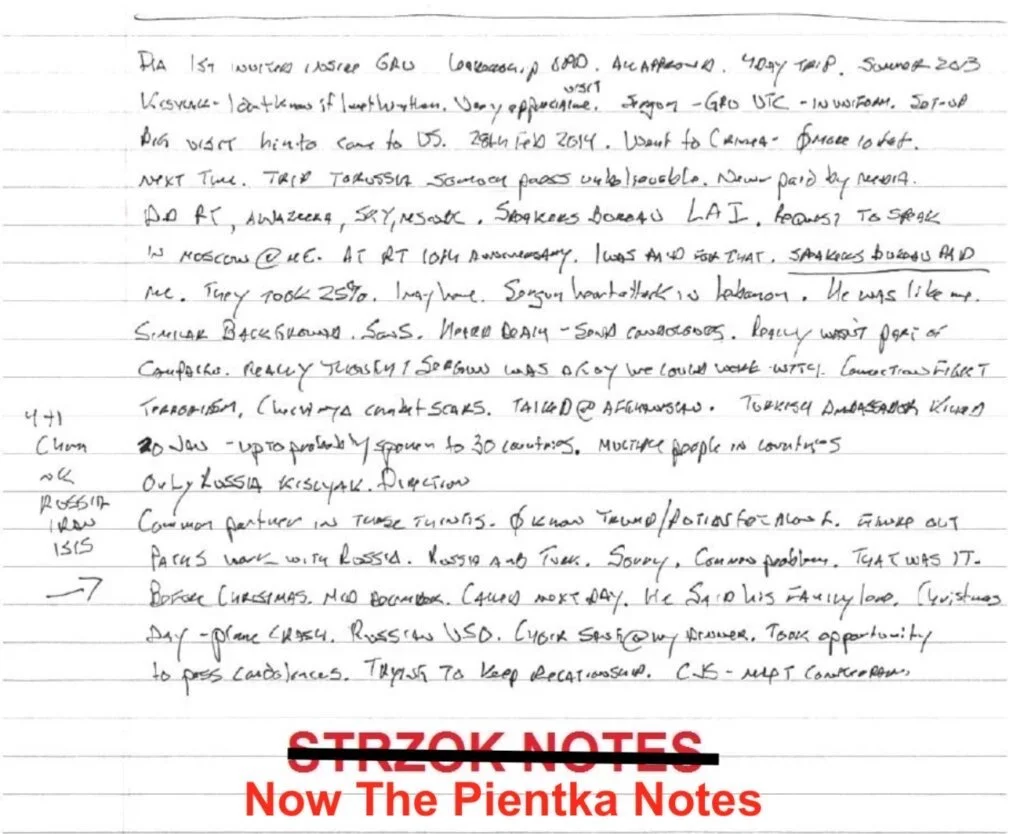 DIA 1st invited inside GRU Leadership . All approved. 4 day trip. Summer 2013
Kislyak - I don't know if I met him then. Very appreciative visit. Sergun - GRU - in uniform. Set-up
Big visit him to come to US. 28th Feb 2014. Went to Crimea - more
Next time. Trip to Russia press unbelievable. Never paid by media.
Did RT, Al Jazeera, Sky, MSNBC. Speakers Bureau LAI. Request to speak
in Moscow @ ME. At RT 10th Anniversary. I was paid for that. Speakers Bureau paid
me. They took 25%. I may have. Sergun heart attack in Lebanon. He was like me.
Similar background. Sons. Heard death - send condolences. Really wasn't part of
campaign. Really thought Sergun was a guy we could work with. fight
terrorism, Chechnya combat scars. Talked @ Afghanistan. Turkish Ambassador killed
4+1
China 20 Jan - up to probably spoken to 30 countries. Multiple people in countries
NK Only Russia Kislyak. Direction
Russia
Iran Common partner in these things. Ø know Trump/Potus . Figure out
ISIS paths work with Russia. Russia and Turk. . Common problem. That was it.
→ Before Christmas. Mid December. Called next day. He said his family . Christmas
Day - plane crash. Russian USO. Choir @ my dinner. Took opportunity
to pass condolences. Trying to keep relationship.
STRZOK NOTES
Now The Pientka Notes